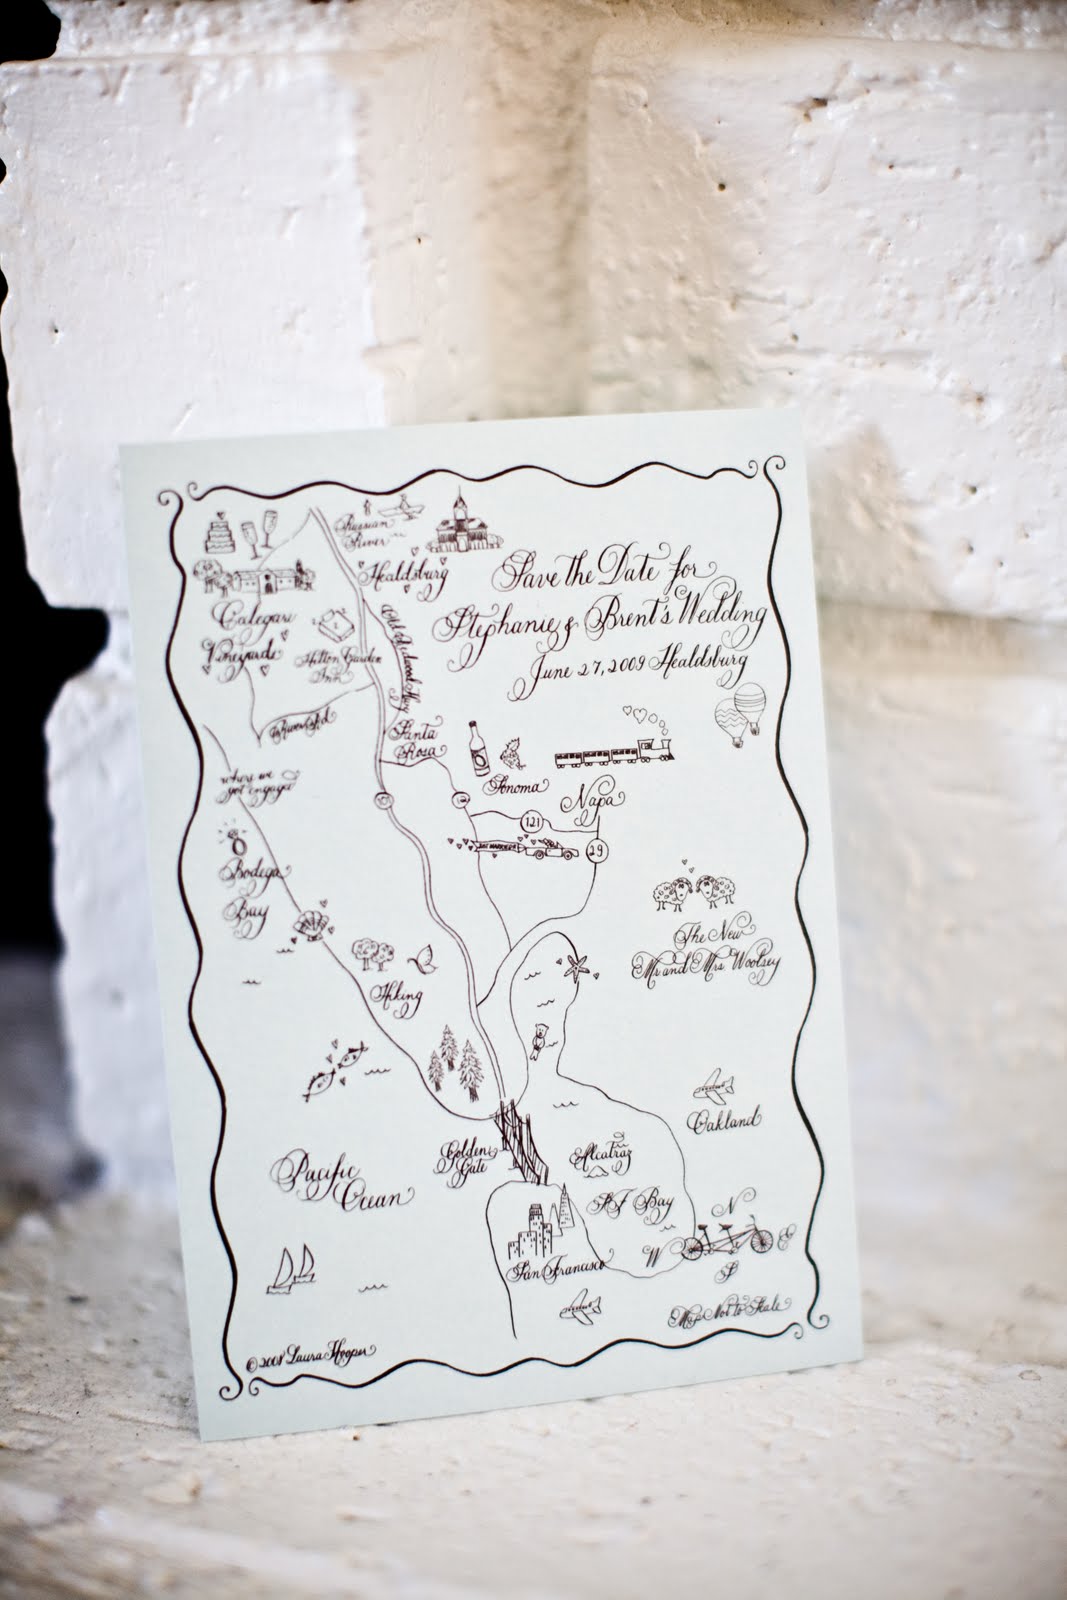 Russian
River
Healdsburg
Save the Date for
Stephanie & Brent's Wedding
June 27, 2009 Healdsburg
Calegari
Vineyards
Hilton Garden
Inn
Old Redwood Hwy
Santa
Rosa
where we
got engaged
Sonoma
Napa
121
29
Just Married
Bodega
Bay
Hiking
The New
Mr and Mrs Woolsey
Oakland
Golden
Gate
Alcatraz
Pacific
Ocean
SF Bay
San Francisco
N
W
E
S
Map Not to Scale
©2008 Laura Hooper